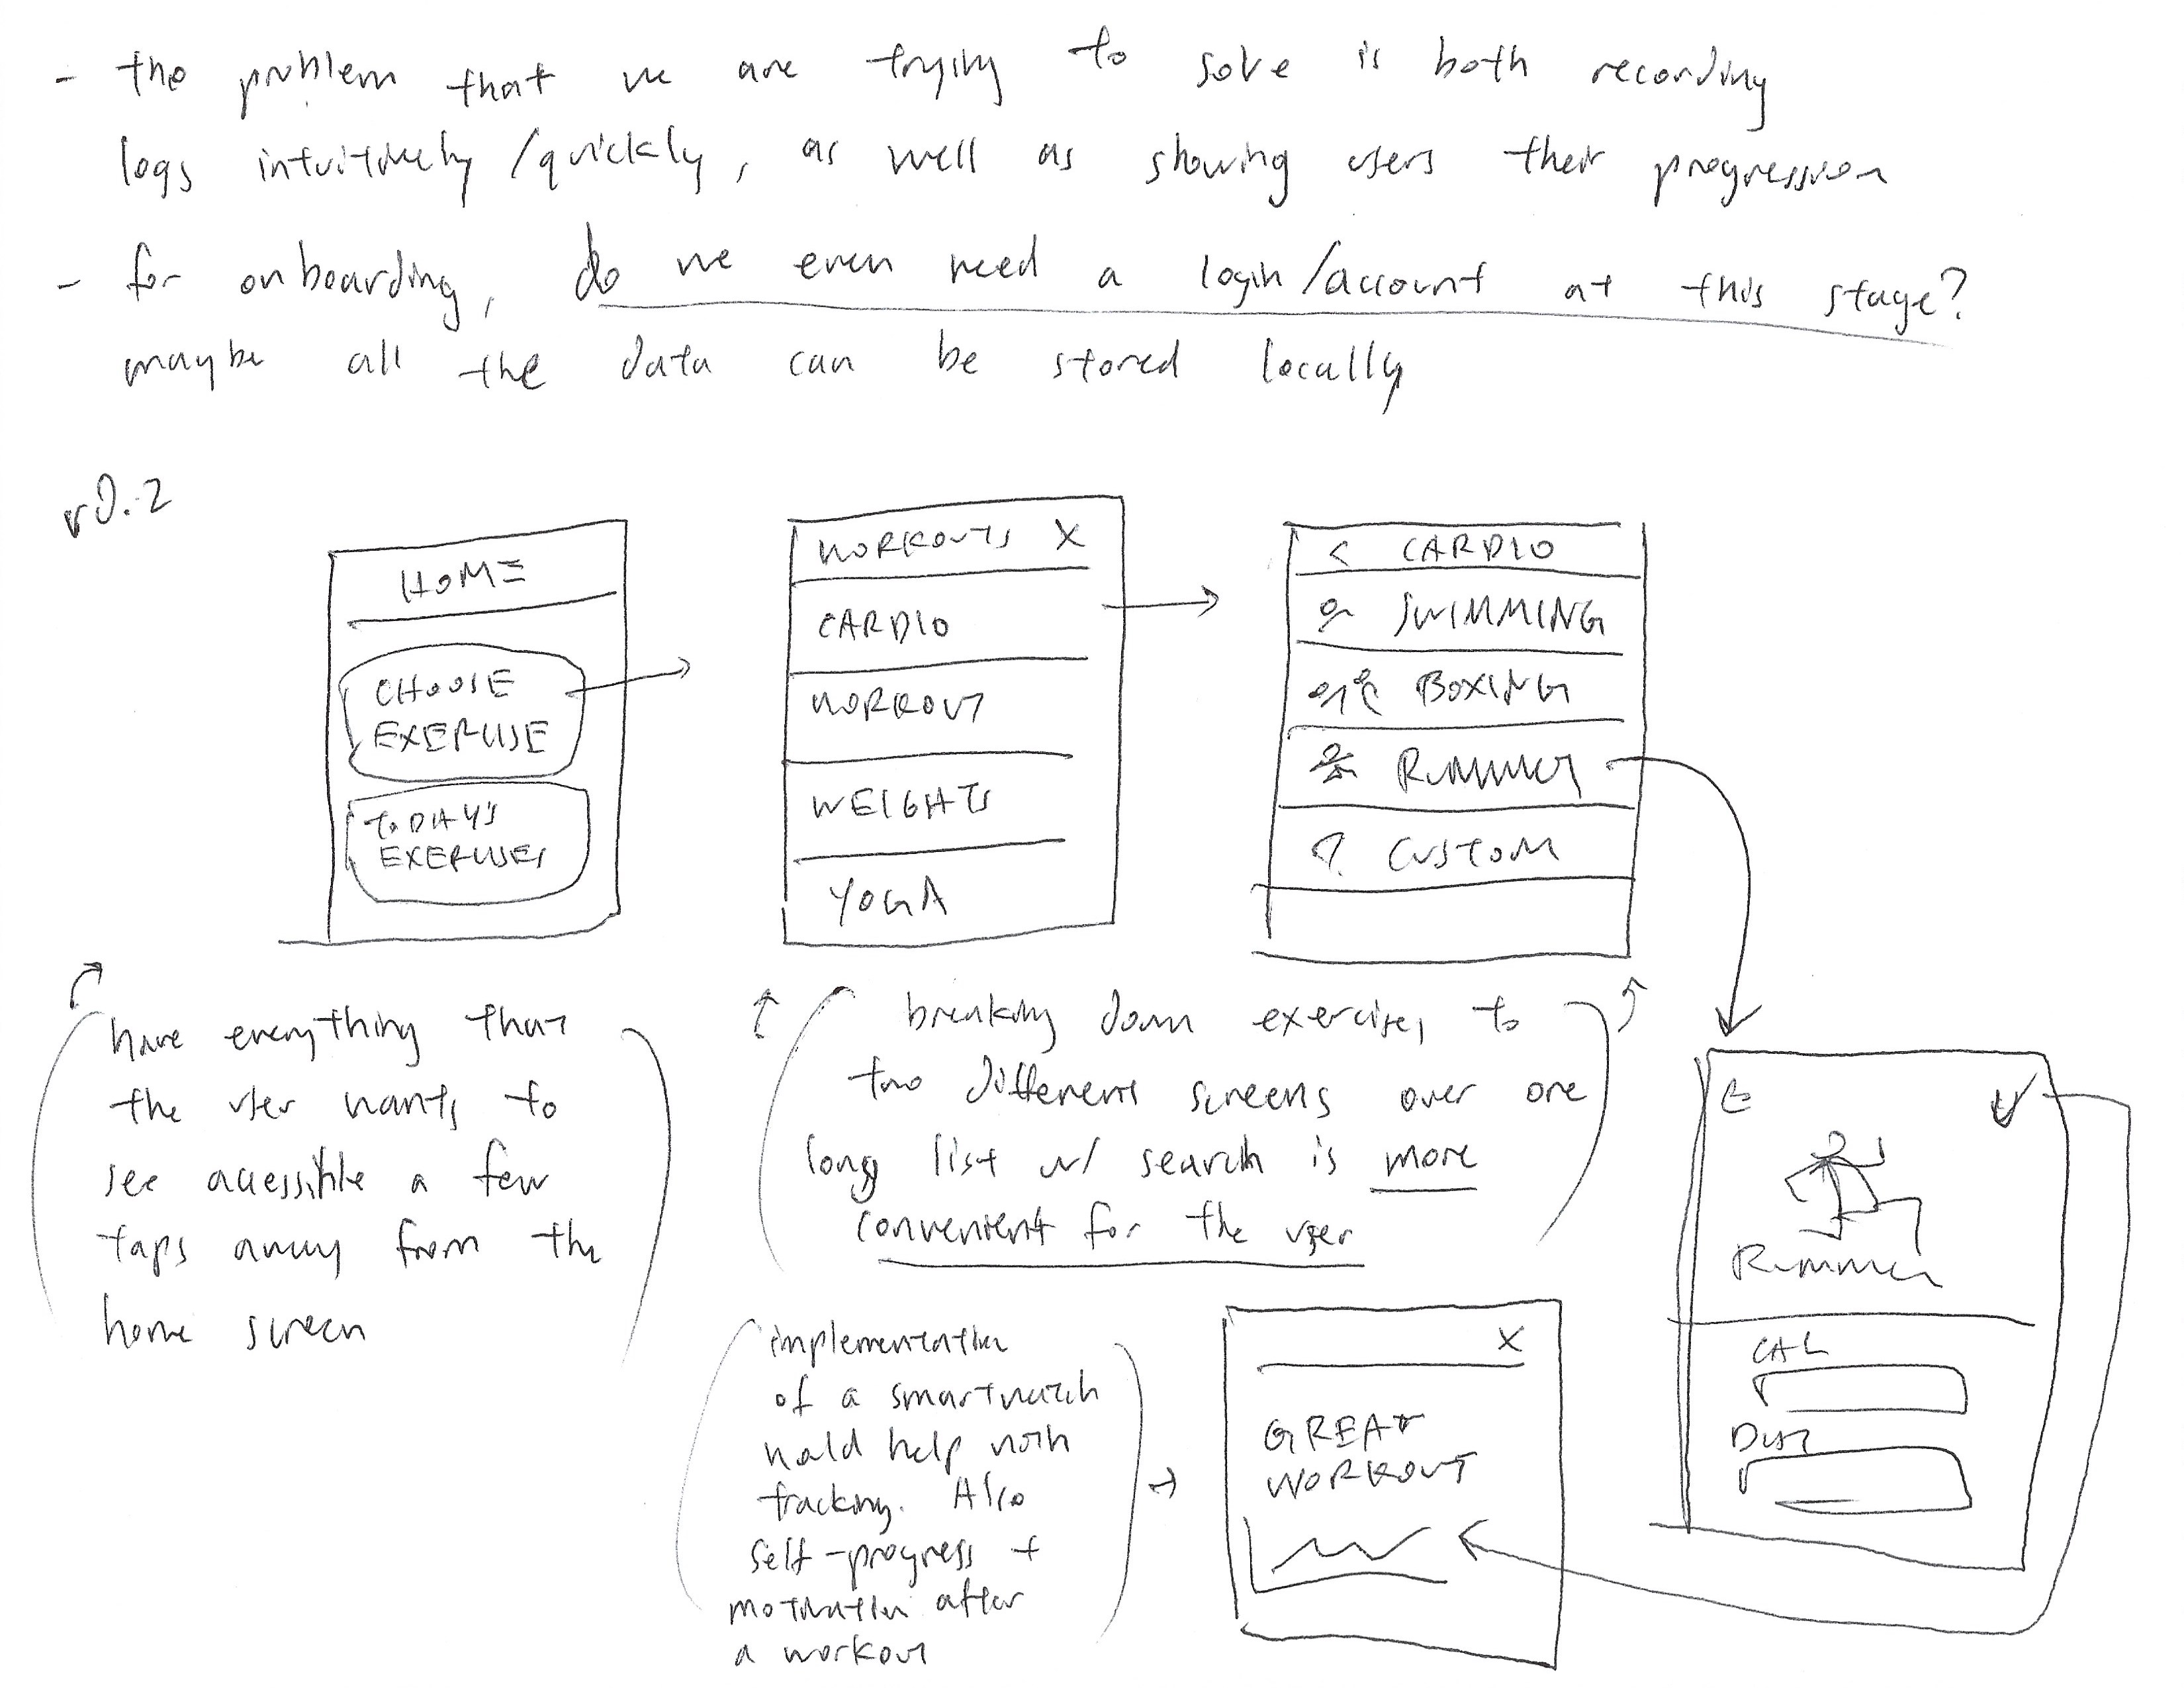 - the problem that we are trying to solve is both recording
logs intuitively/quickly, as well as showing users their progression
- for onboarding, do we even need a login/account at this stage?
maybe all the data can be stored locally
v0.2
HOME
CHOOSE
EXERCISE
TODAY'S
EXERCISES
WORKOUTS X
CARDIO
WORKOUT
WEIGHTS
YOGA
< CARDIO
SWIMMING
BOXING
RUNNER
? CUSTOM
have everything that
the user wants to
see accessible a few
taps away from the
home screen
breaking down exercises to
two different screens over one
long list w/ search is more
convenient for the user
Runner
CAL
DIST
implementation
of a smartwatch
would help with
tracking. Also
self-progress +
motivation after
a workout
X
GREAT
WORKOUT